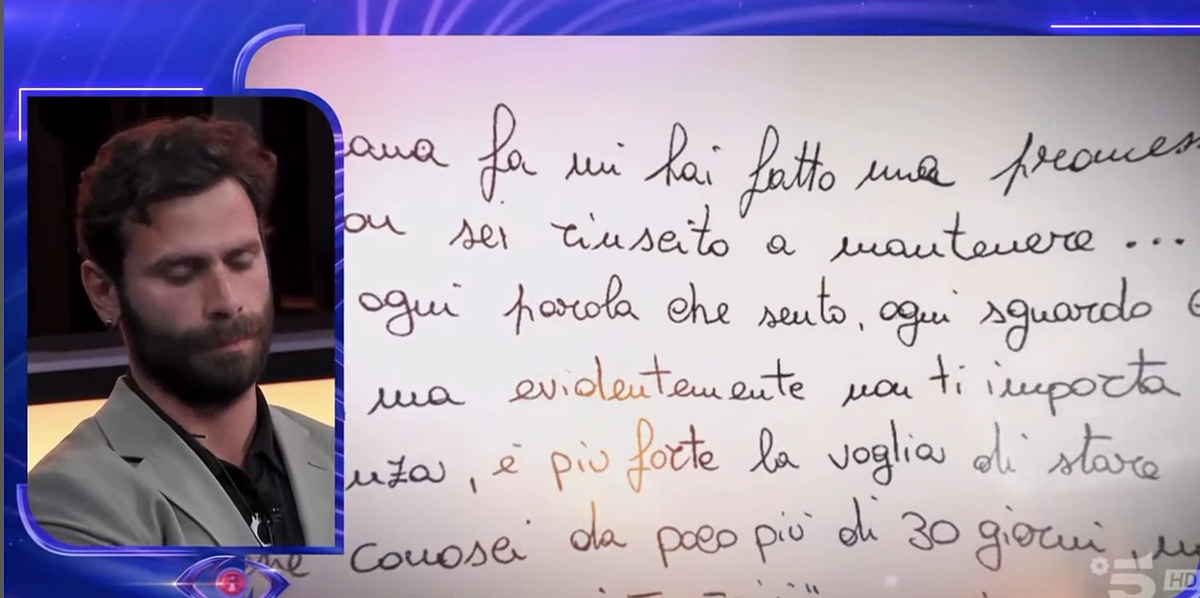 fa mi hai fatto una promess
sei riuscito a mantenere ...
ogni parola che sento, ogni sguardo
ma evidentemente non ti importa
, è più forte la voglia di stare
conosci da poco più di 30 giorni,
5 HD